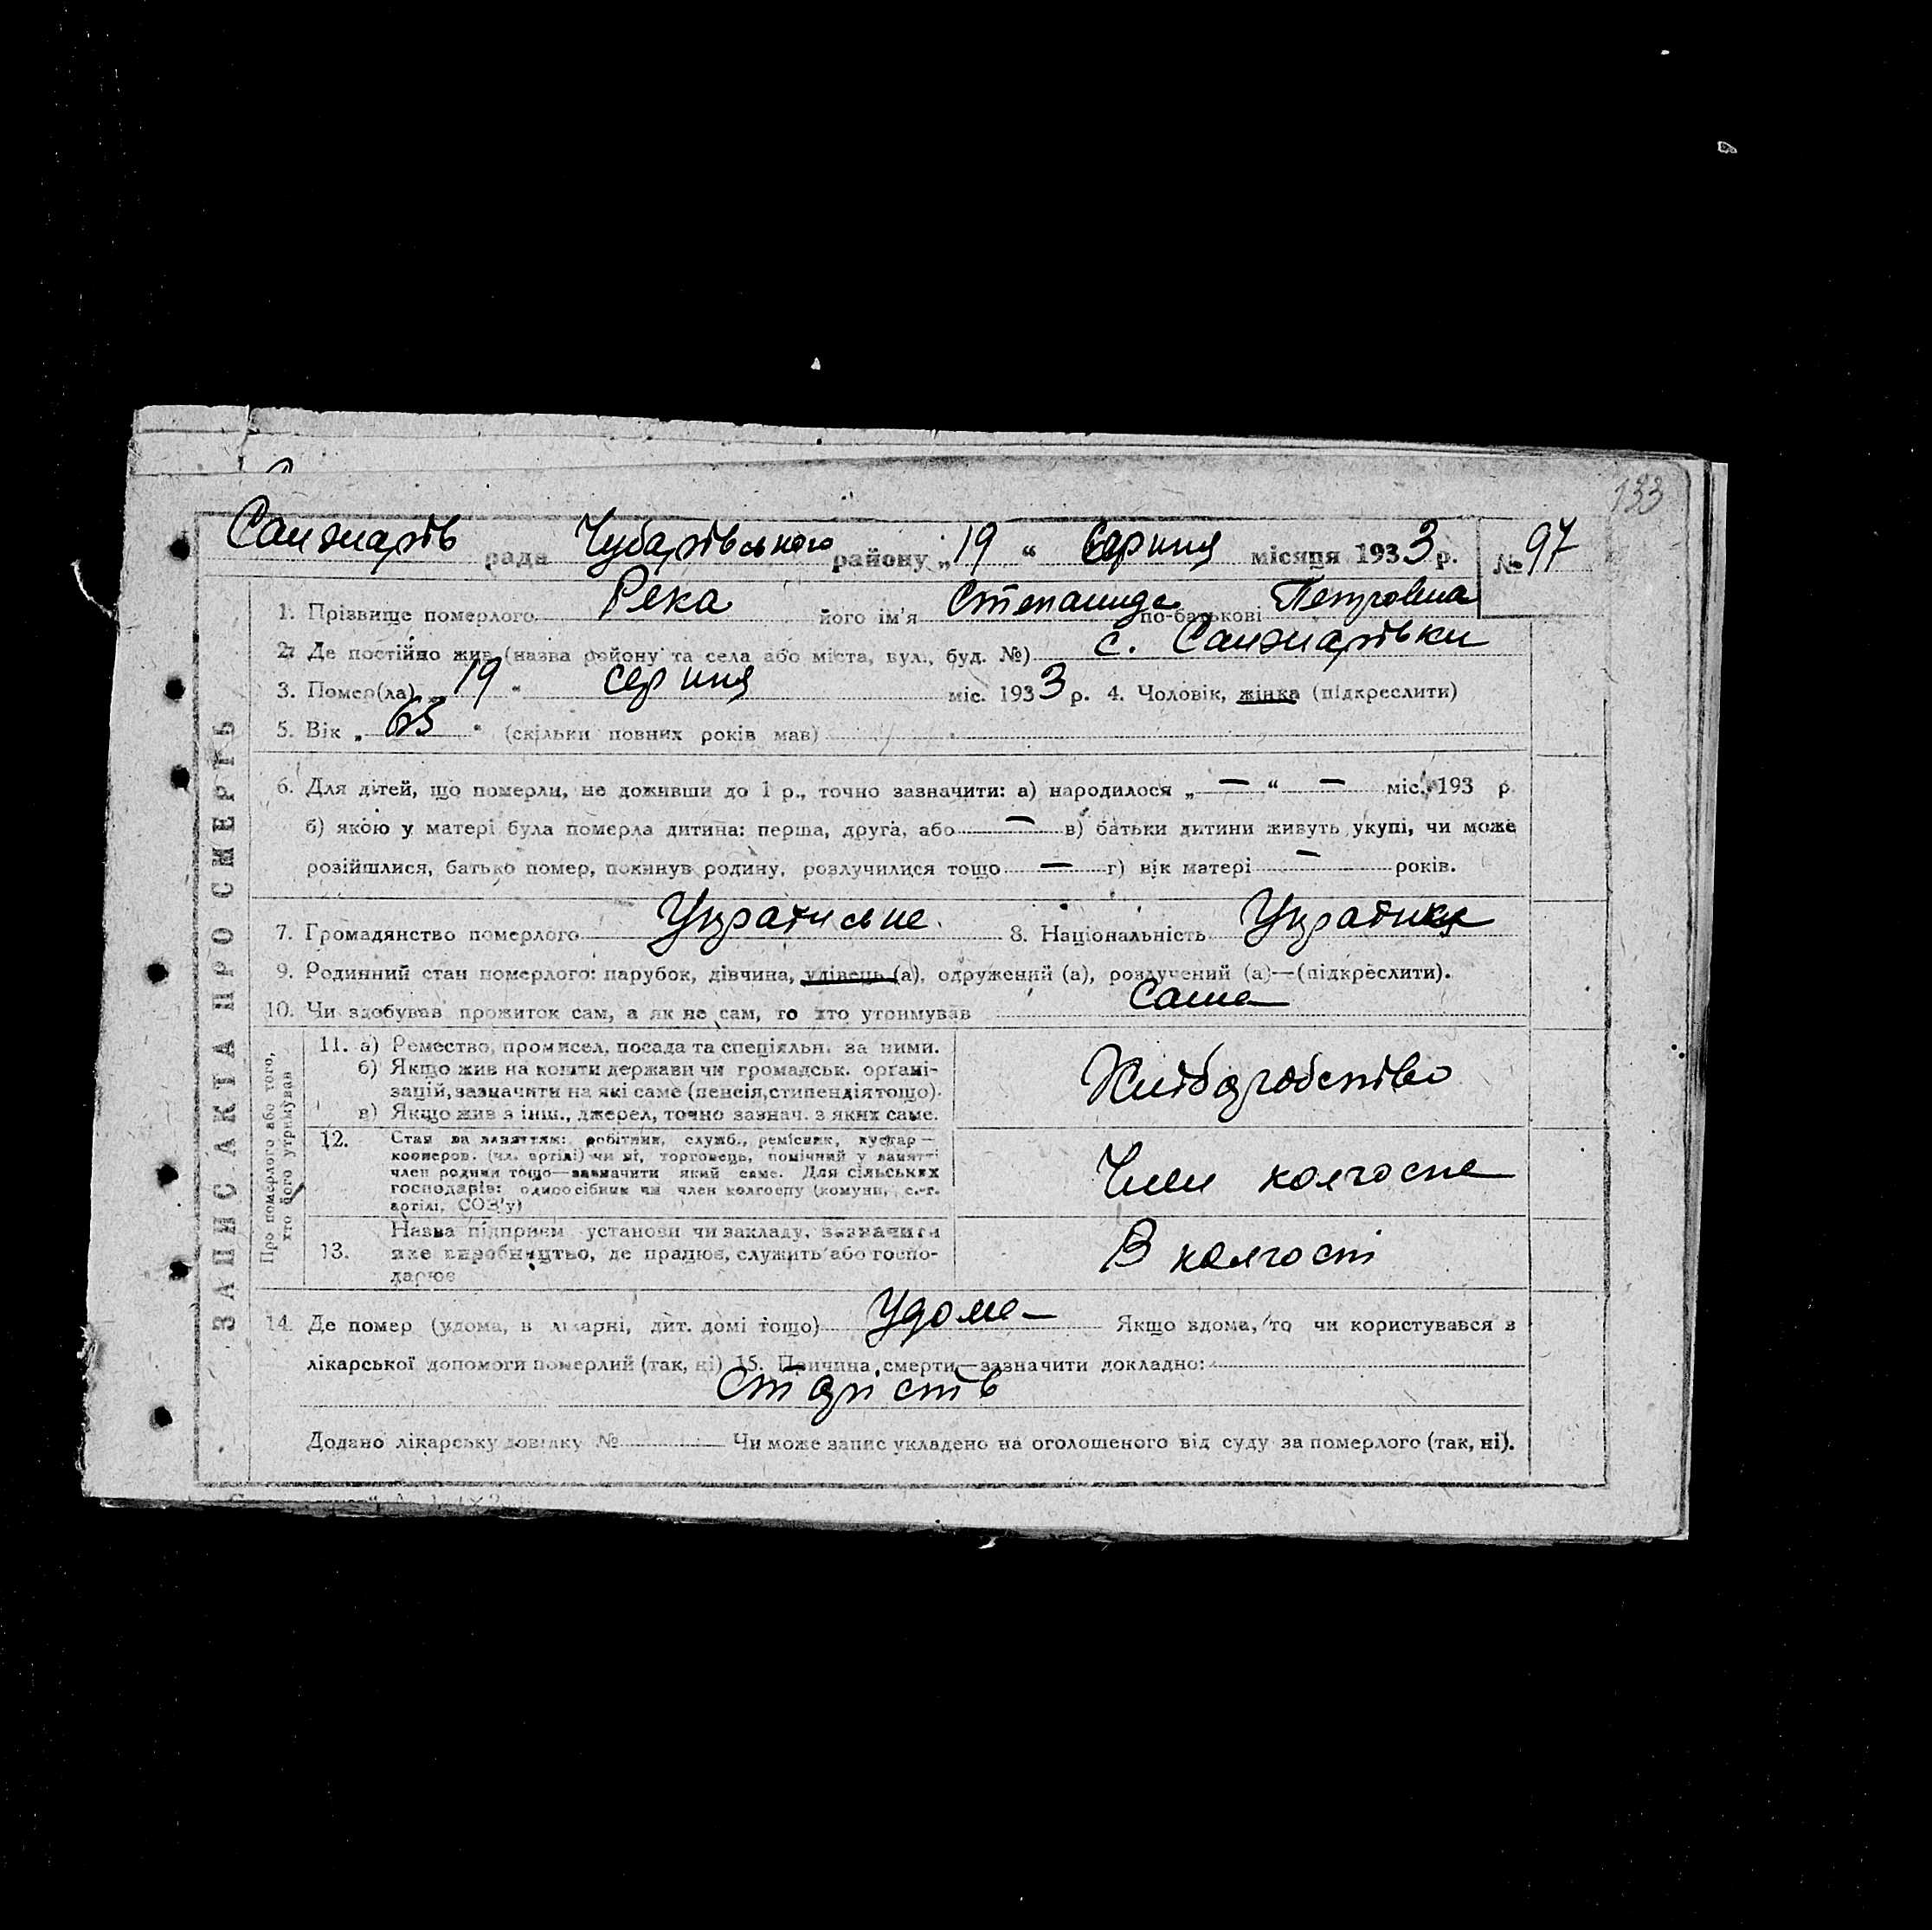 133
Санжарів рада Чубарівського району „19 “ серпня місяця 1933 р. № 97
1. Прізвище померлого Река його ім'я Степанида по-батькові Петровна
2. Де постійно жив (назва району та села або міста, вул., буд. №) с. Санжарівки
3. Помер(ла) „19 “ серпня міс. 1933 р. 4. Чоловік, жінка (підкреслити)
5. Вік „ 65 “ (скільки повних років мав)
6. Для дітей, що померли, не доживши до 1 р., точно зазначити: а) народилося „ — “ — міс. 193 р.
б) якою у матері була померла дитина: перша, друга, або — в) батьки дитини живуть укупі, чи може
розійшлися, батько помер, покинув родину, розлучилися тощо — г) вік матері — років.
7. Громадянство померлого Українське 8. Національність Українка
9. Родинний стан померлого: парубок, дівчина, удівець (а), одружений (а), розлучений (а)—(підкреслити).
10. Чи здобував прожиток сам, а як не сам, то хто утримував Сама
ЗАПИС АКТА ПРО СМЕРТЬ
Про померлого або того,
хто його утримував
11. а) Ремество, промисел, посада та спеціяльн. за ними.
б) Якщо жив на кошти держави чи громадськ. органі-
зацій, зазначити на які саме (пенсія, стипендія тощо).
в) Якщо жив з інш., джерел, точно зазнач. з яких саме.
Хліборобство
12. Стан за заняттям: робітник, служб., ремісник, кустар—
кооперов. (чл. артілі) чи ні, торговець, помічний у занятті
член родини тощо—зазначити який саме. Для сільських
господарів: одноосібник чи член колгоспу (комуни, с.-г.
артілі, СОЗ'у)
Член колгоспа
13. Назва підприєм установи чи закладу, зазначити
яке виробництво, де працює, служить або госпо-
дарює
В колгоспі
14. Де помер (удома, в лікарні, дит. домі тощо) Удома Якщо вдома, то чи користувався з
лікарської допомоги померлий (так, ні) 15. Причина смерти—зазначити докладно:
Старість
Додано лікарську довідку № Чи може запис укладено на оголошеного від суду за померлого (так, ні).